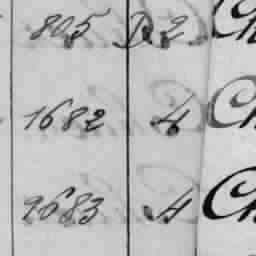 805 D.2 Ch
1682 4 Ch
9683 4 Ch